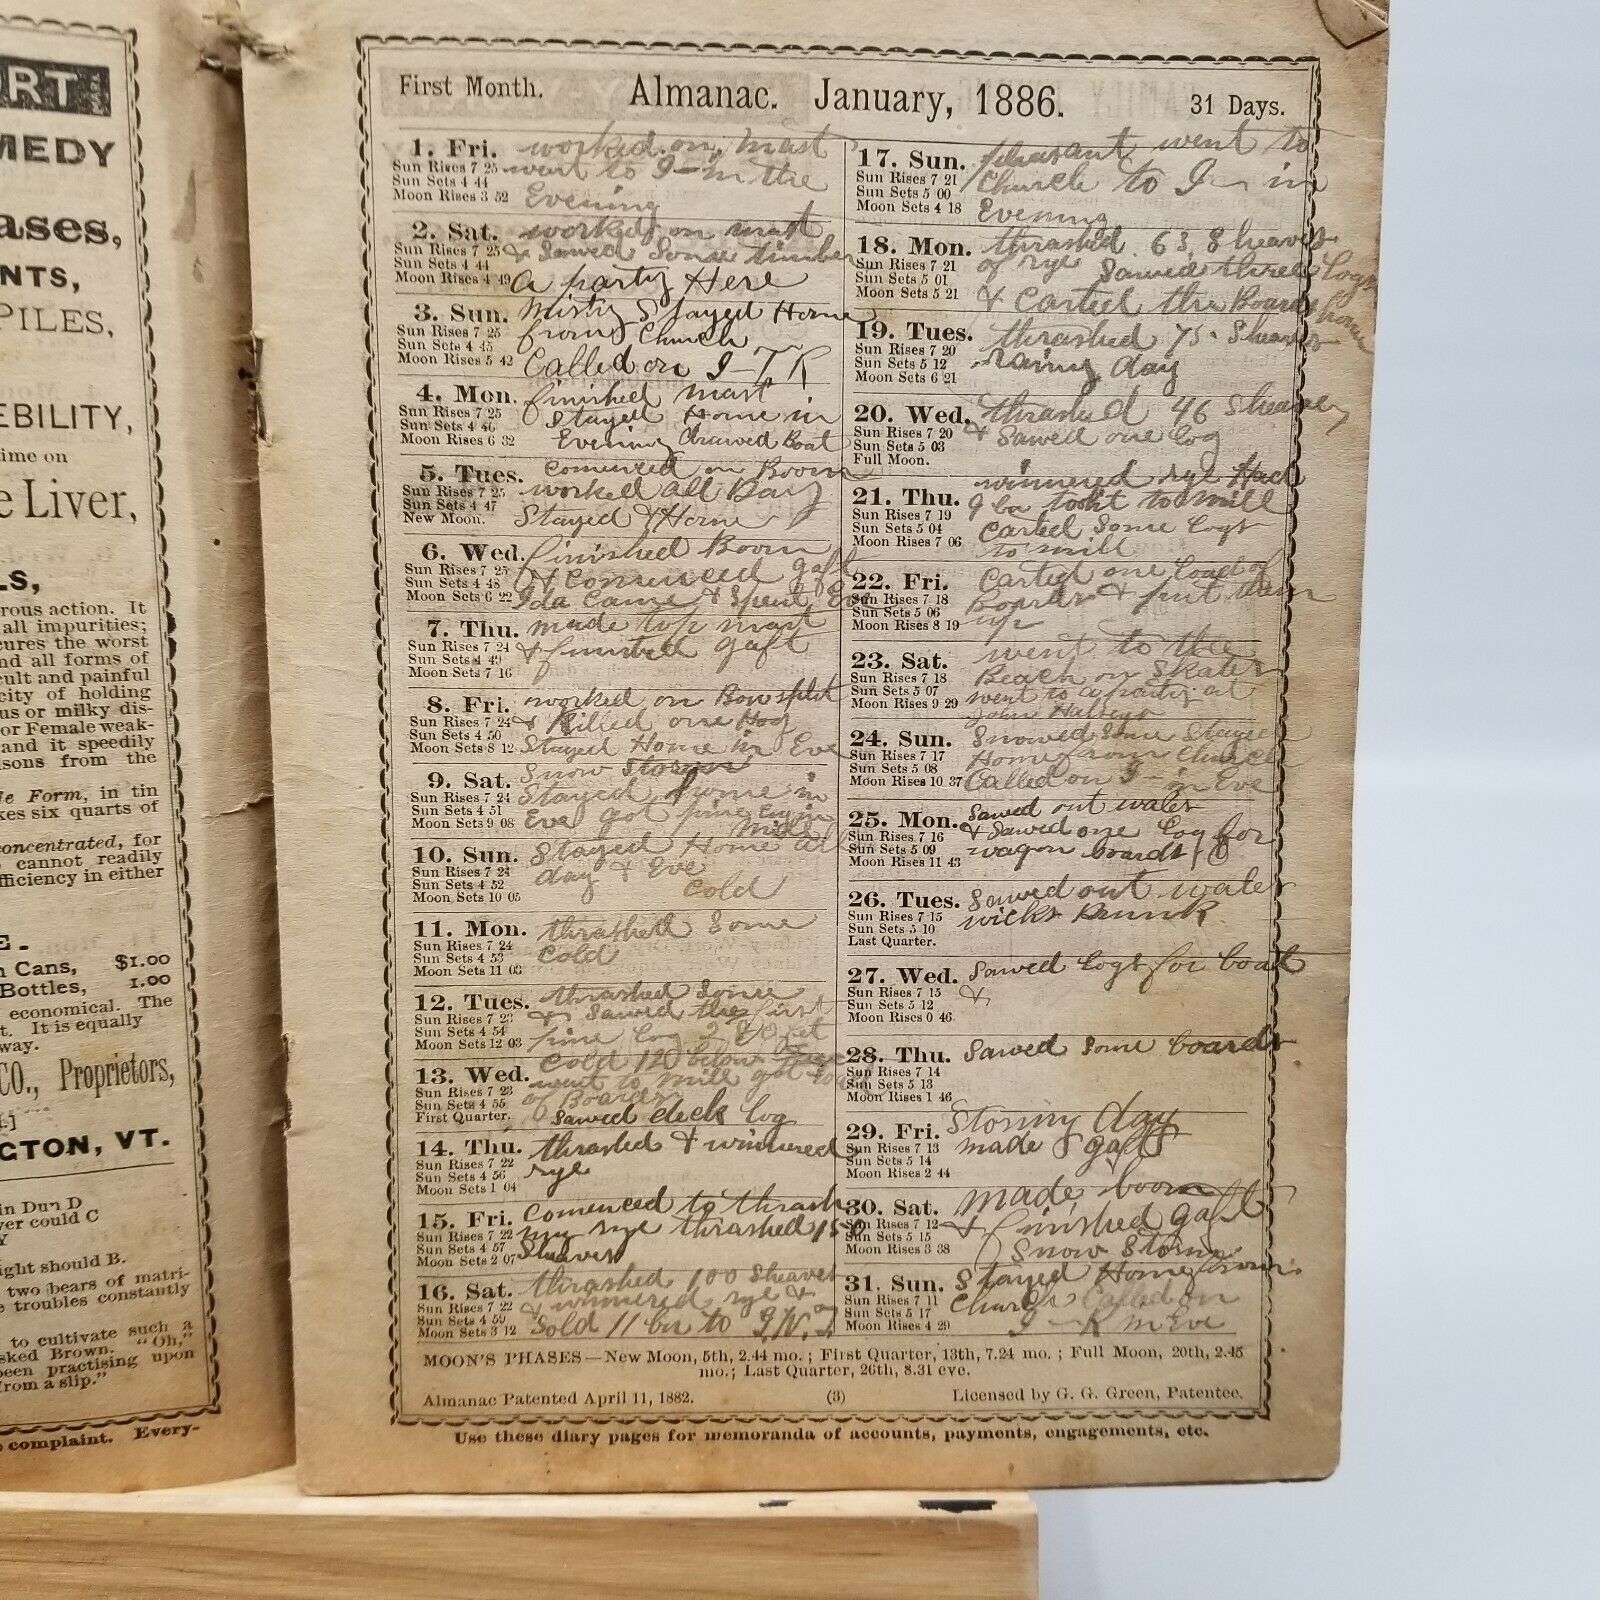 RT
MEDY
ases,
NTS,
PILES,
EBILITY,
ime on
e Liver,
LS,
rous action. It
all impurities;
cures the worst
nd all forms of
cult and painful
city of holding
us or milky dis-
or Female weak-
and it speedily
sons from the
le Form, in tin
kes six quarts of
concentrated, for
cannot readily
fficiency in either
E.
n Cans, $1.00
Bottles, 1.00
economical. The
t. It is equally
way.
CO., Proprietors,
GTON, VT.
in Dun D
ver could C
Y
ight should B.
two bears of matri-
e troubles constantly
to cultivate such a
sked Brown. "Oh,"
been practising upon
from a slip."
complaint. Every-
First Month. Almanac. January, 1886. 31 Days.
1. Fri. worked on mast
Sun Rises 7 25 went to I— in the
Sun Sets 4 44
Moon Rises 3 52 Evening
2. Sat. worked on mast
Sun Rises 7 25 & Sawed Some timber
Sun Sets 4 44
Moon Rises 4 49 a party Here
3. Sun. Misty Stayed Home
Sun Rises 7 25 from Church
Sun Sets 4 45
Moon Rises 5 42 Called on I—T R
4. Mon. finished mast
Sun Rises 7 25 Stayed Home in
Sun Sets 4 46
Moon Rises 6 32 Evening drawed Boat
5. Tues. Comenced on Boom
Sun Rises 7 25 worked all Day
Sun Sets 4 47
New Moon. Stayed & Home
6. Wed. finished Boom
Sun Rises 7 25 & Comenced gaft
Sun Sets 4 48
Moon Sets 6 22 Ida Came & Spent Eve
7. Thu. made top mast
Sun Rises 7 24 & finished gaft
Sun Sets 4 49
Moon Sets 7 16
8. Fri. worked on Bowsplit
Sun Rises 7 24 & Killed one Hog
Sun Sets 4 50
Moon Sets 8 12 Stayed Home in Eve
9. Sat. Snow Storm
Sun Rises 7 24 Stayed Home in
Sun Sets 4 51
Moon Sets 9 08 Eve got pine log in
mill
10. Sun. Stayed Home all
Sun Rises 7 24 day & Eve
Sun Sets 4 52 Cold
Moon Sets 10 05
11. Mon. thrashed Some
Sun Rises 7 24 Cold
Sun Sets 4 53
Moon Sets 11 03
12. Tues. thrashed Some
Sun Rises 7 23 & Sawed the first
Sun Sets 4 54
Moon Sets 12 03 pine log
Cold 120 below
13. Wed. went to mill got
Sun Rises 7 23 of Boards
Sun Sets 4 55
First Quarter. Sawed deck log
14. Thu. thrashed & winnered
Sun Rises 7 22 rye
Sun Sets 4 56
Moon Sets 1 04
15. Fri. Comenced to thrash
Sun Rises 7 22 my rye thrashed 150
Sun Sets 4 57
Moon Sets 2 07 Sheaves
16. Sat. thrashed 100 Sheaves
Sun Rises 7 22 & winnered rye &
Sun Sets 4 59
Moon Sets 3 12 Sold 11 bu to
17. Sun. pleasant went to
Sun Rises 7 21 Church to I— in
Sun Sets 5 00
Moon Sets 4 18 Evening
18. Mon. thrashed 63 Sheaves
Sun Rises 7 21 of rye Sawed three logs
Sun Sets 5 01
Moon Sets 5 21 & Carted the Boards home
19. Tues. thrashed 75 Sheaves
Sun Rises 7 20 rainy day
Sun Sets 5 12
Moon Sets 6 21
20. Wed. thrashed 46 Sheaves
Sun Rises 7 20 & Sawed one log
Sun Sets 5 03
Full Moon.
winnered rye Had
21. Thu. 9 bu tooht to mill
Sun Rises 7 19 Carted Some logs
Sun Sets 5 04
Moon Rises 7 06 to mill
22. Fri. Carted one load of
Sun Rises 7 18 Boards & put them
Sun Sets 5 06
Moon Rises 8 19 up
went to the
23. Sat. Beach on Skates
Sun Rises 7 18 went to a party at
Sun Sets 5 07
Moon Rises 9 29 John Halseys
24. Sun. Snowed Some Stayed
Sun Rises 7 17 Home from Church
Sun Sets 5 08
Moon Rises 10 37 Called on I— in Eve
25. Mon. Sawed out wales
Sun Rises 7 16 & Sawed one log for
Sun Sets 5 09
Moon Rises 11 43 wagon boards
26. Tues. Sawed out wales
Sun Rises 7 15 wicks
Sun Sets 5 10
Last Quarter.
27. Wed. Sawed logs for boat
Sun Rises 7 15 &
Sun Sets 5 12
Moon Rises 0 46
28. Thu. Sawed Some boards
Sun Rises 7 14
Sun Sets 5 13
Moon Rises 1 46
29. Fri. Stormy day
Sun Rises 7 13 made gaft
Sun Sets 5 14
Moon Rises 2 44
30. Sat. made boom
Sun Rises 7 12 & finished gaft
Sun Sets 5 15
Moon Rises 3 38 Snow Storm
31. Sun. Stayed Home from
Sun Rises 7 11 Church Called on
Sun Sets 5 17
Moon Rises 4 29 I—R in Eve
MOON'S PHASES—New Moon, 5th, 2.44 mo.; First Quarter, 13th, 7.24 mo.; Full Moon, 20th, 2.45
mo.; Last Quarter, 26th, 8.31 eve.
Almanac Patented April 11, 1882. (3) Licensed by G. G. Green, Patentee.
Use these diary pages for memoranda of accounts, payments, engagements, etc.